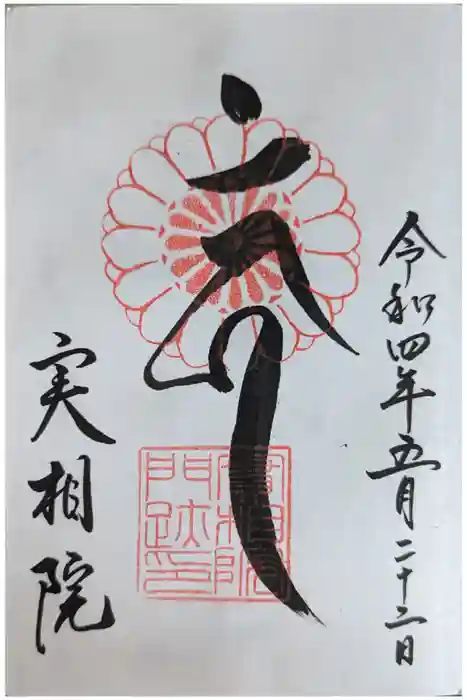 令和四年五月二十二日
實相院
門跡印
実相院